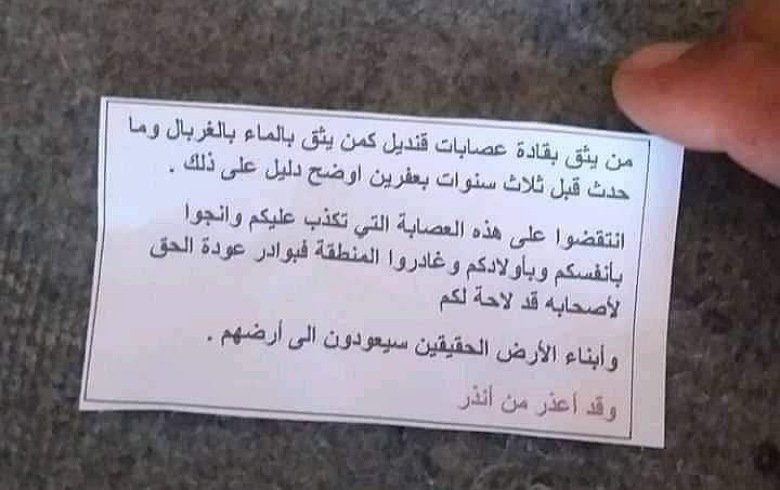 من يثق بقادة عصابات قنديل كمن يثق بالماء بالغربال وما
حدث قبل ثلاث سنوات بعفرين اوضح دليل على ذلك .
انتقضوا على هذه العصابة التي تكذب عليكم وانجوا
بأنفسكم وبأولادكم وغادروا المنطقة فبوادر عودة الحق
لأصحابه قد لاحة لكم
وأبناء الأرض الحقيقين سيعودون الى أرضهم .
وقد أعذر من أنذر